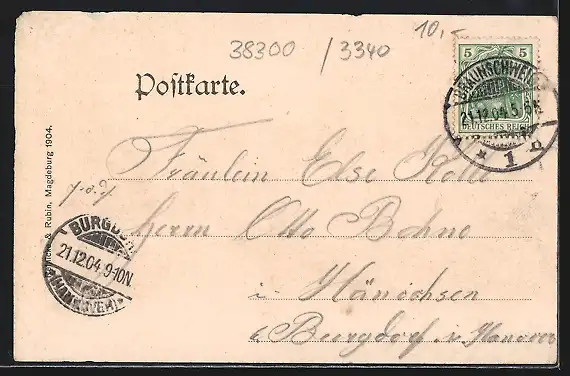 10,-
38300 / 3340
Postkarte.
5 5
DEUTSCHES REICH
BRAUNSCHWEIG
21.12.04.5-6N
* 1 n
Fräulein Else
Herrn Otto Bohne
i Hänichsen
b/ Burgdorf i/ Hanover
BURGDORF
21.12.04 9-10N
(HANNOVER)
& Rubin, Magdeburg 1904.